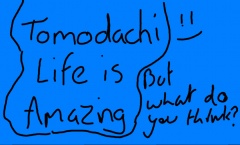 Tomodachi
Life is
Amazing
But
what do
you think?